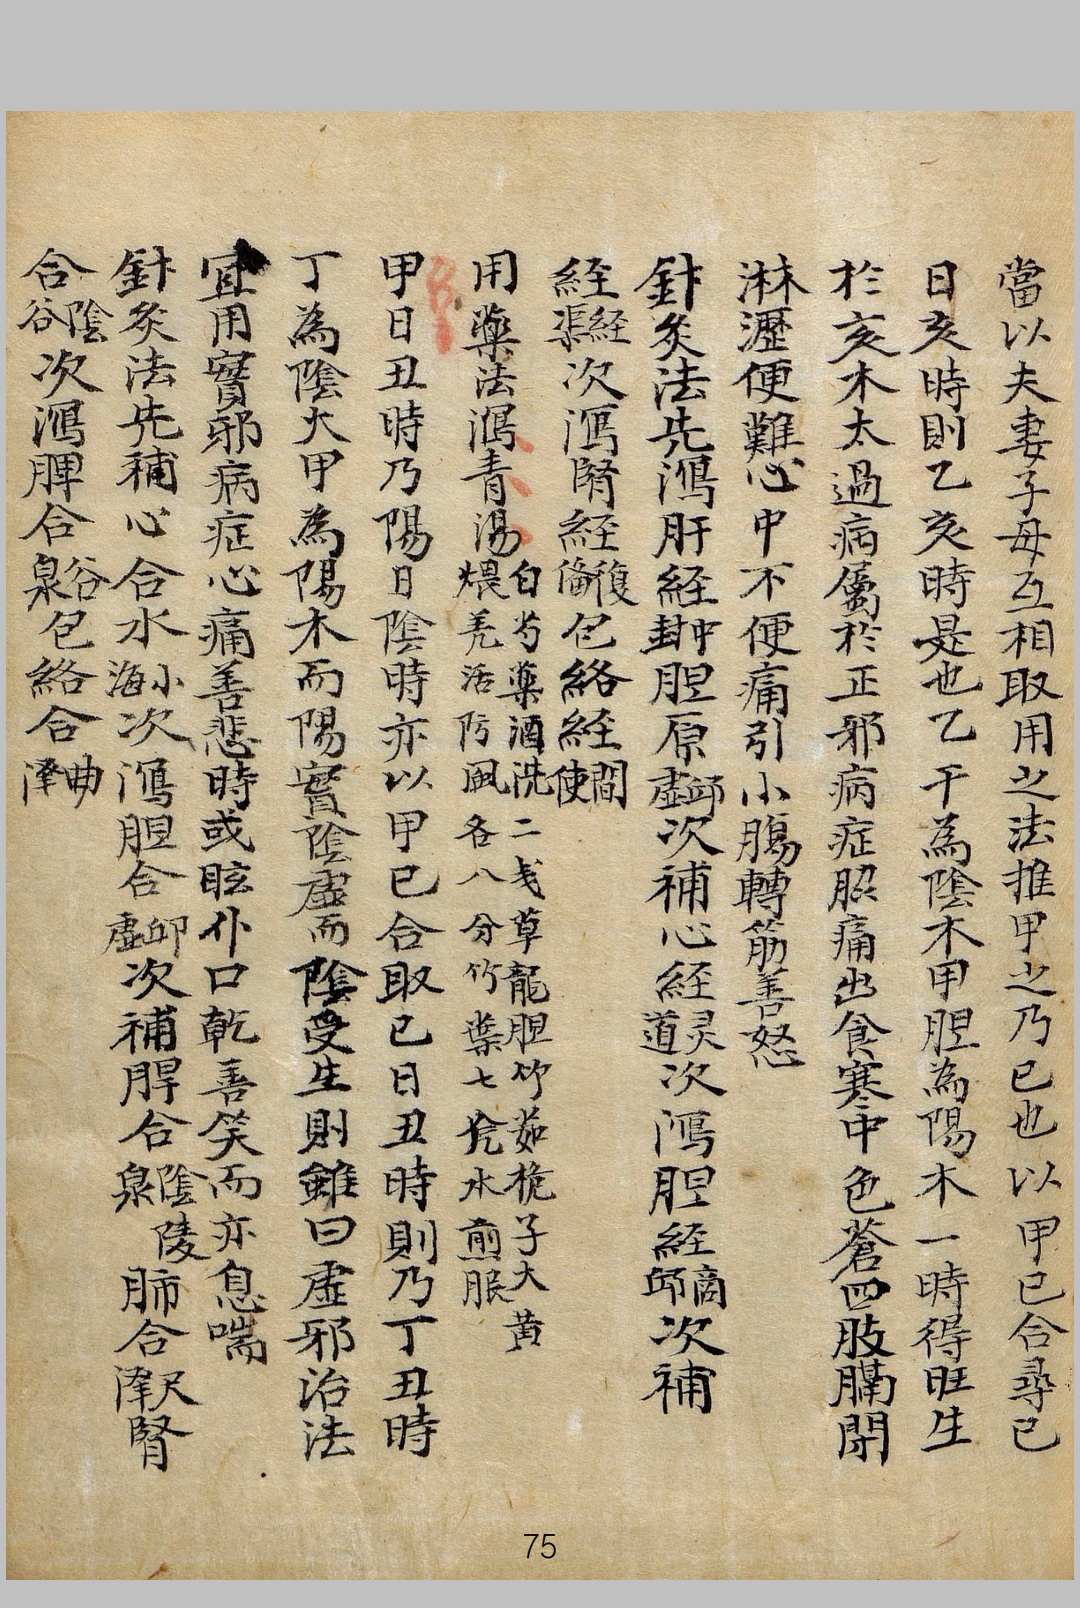 當以夫妻子母互相取用之法推甲之乃已也以甲已合尋已
日亥時則乙亥時是也乙干為陰木甲胆為陽木一時得旺生
於亥木太過病屬於正邪病症腏痛出食寒中色蒼四肢膈閉
淋瀝便難心中不便痛引小膓轉筋善怒
針灸法先瀉肝經中封胆原邱虛次補心經灵道次瀉胆經商邱次補
經經渠次瀉腎經復溜包絡經間使
用藥法瀉青湯白芍藥酒洗二戔草龍胆竹茹桅子大黄煨羌活防風各八分竹葉七旕水煎服
甲日丑時乃陽日陰時亦以甲已合取已日丑時則乃丁丑時
丁為陰火甲為陽木而陽實陰虛而陰受生則雖曰虛邪治法
宜用實邪病症心痛善悲時或眩仆口乾善笑而亦息喘
針灸法先補心合水小海次瀉胆合邱虛次補脾合陰陵泉肺合尺澤腎
合陰谷次瀉脾合谷泉包絡合曲澤
75